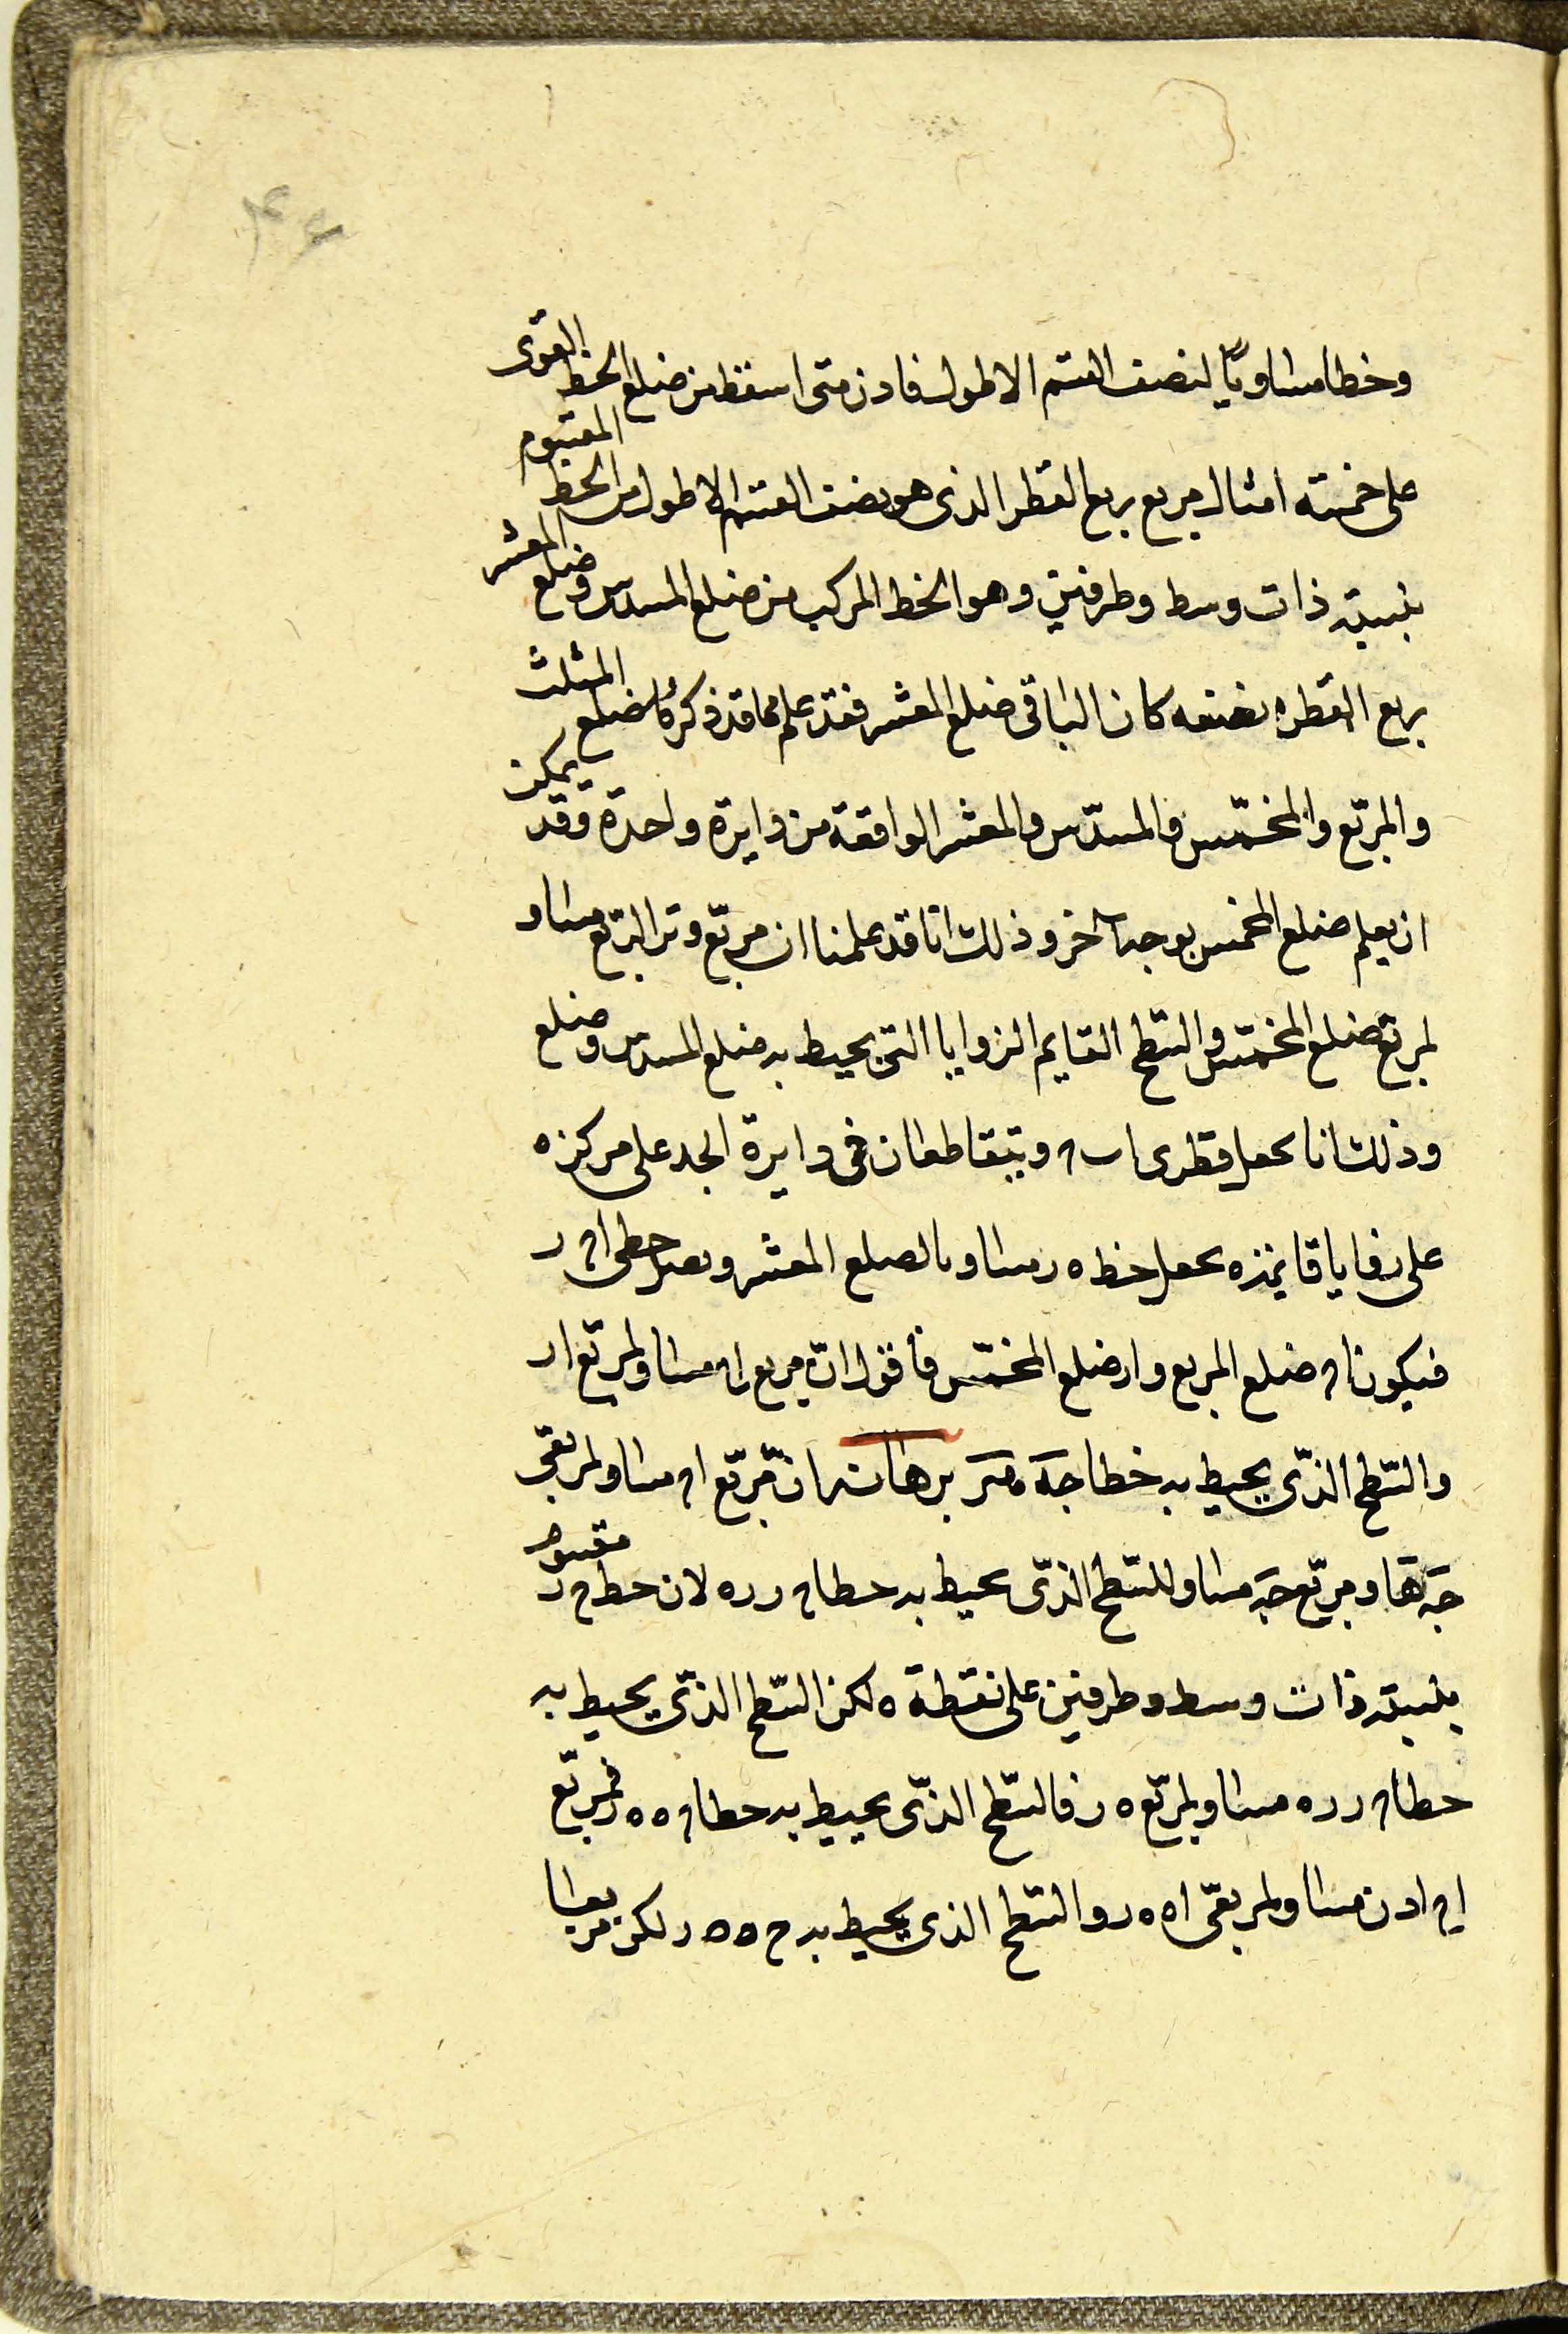 وخطا مساويًا لنصف القسم الاطول فاذن متى اسقط من ضلع الخط القوى
على خمسة امثال مربع ربع القطر الذى هو نصف القسم الاطول من الخط المقسوم
بنسبة ذات وسط وطرفين وهو الخط المركب من ضلع المسدس وضلع المعشر
ربع القطر نصفه كان الباقى ضلع المعشر فقد علم مما قد ذكرنا ضلع المثلث
والمربّع والمخمّس والمسدّس والمعشر الواقعة من دايرة واحدة وقد يمكن
ان يعلم ضلع المخمس بوجه آخر وذلك انا قد علمنا ان مربّع وتر الربع مساو
لمربّع ضلع المخمّس والسّطح القايم الزوايا التى يحيط به ضلع المسدس وضلع
وذلك انا نجعل قطرى اب ح ويتقاطعان فى دايرة ابجد على مركز ه
على زوايا قايمة ونجعل خط ه ر مساويا لضلع المعشر ونصل خطى اح ر
فيكون اح ضلع المربع وار ضلع المخمّس فأقول انّ مربع اح مساو لمربّع ار
والسّطح الذّى يحيط به خطا جه هر برهانه ان مربّع اح مساو لمربعى
جه ها ومربّع جه مساو للسّطح الذّى يحيط به خطا ح ر ره لان خط ح ر مقسوم
بنسبة ذات وسط وطرفين على نقطة ه لكن السّطح الذّى يحيط به
خطا ح ر ره مساو لمربّع ه ر فالسّطح الذّى يحيط به خطا ح ه ه ر فمربّع
اح اذن مساو لمربعّى اه ه ر والسّطح الذى يحيط به ح ه ه ر لكن مربعا